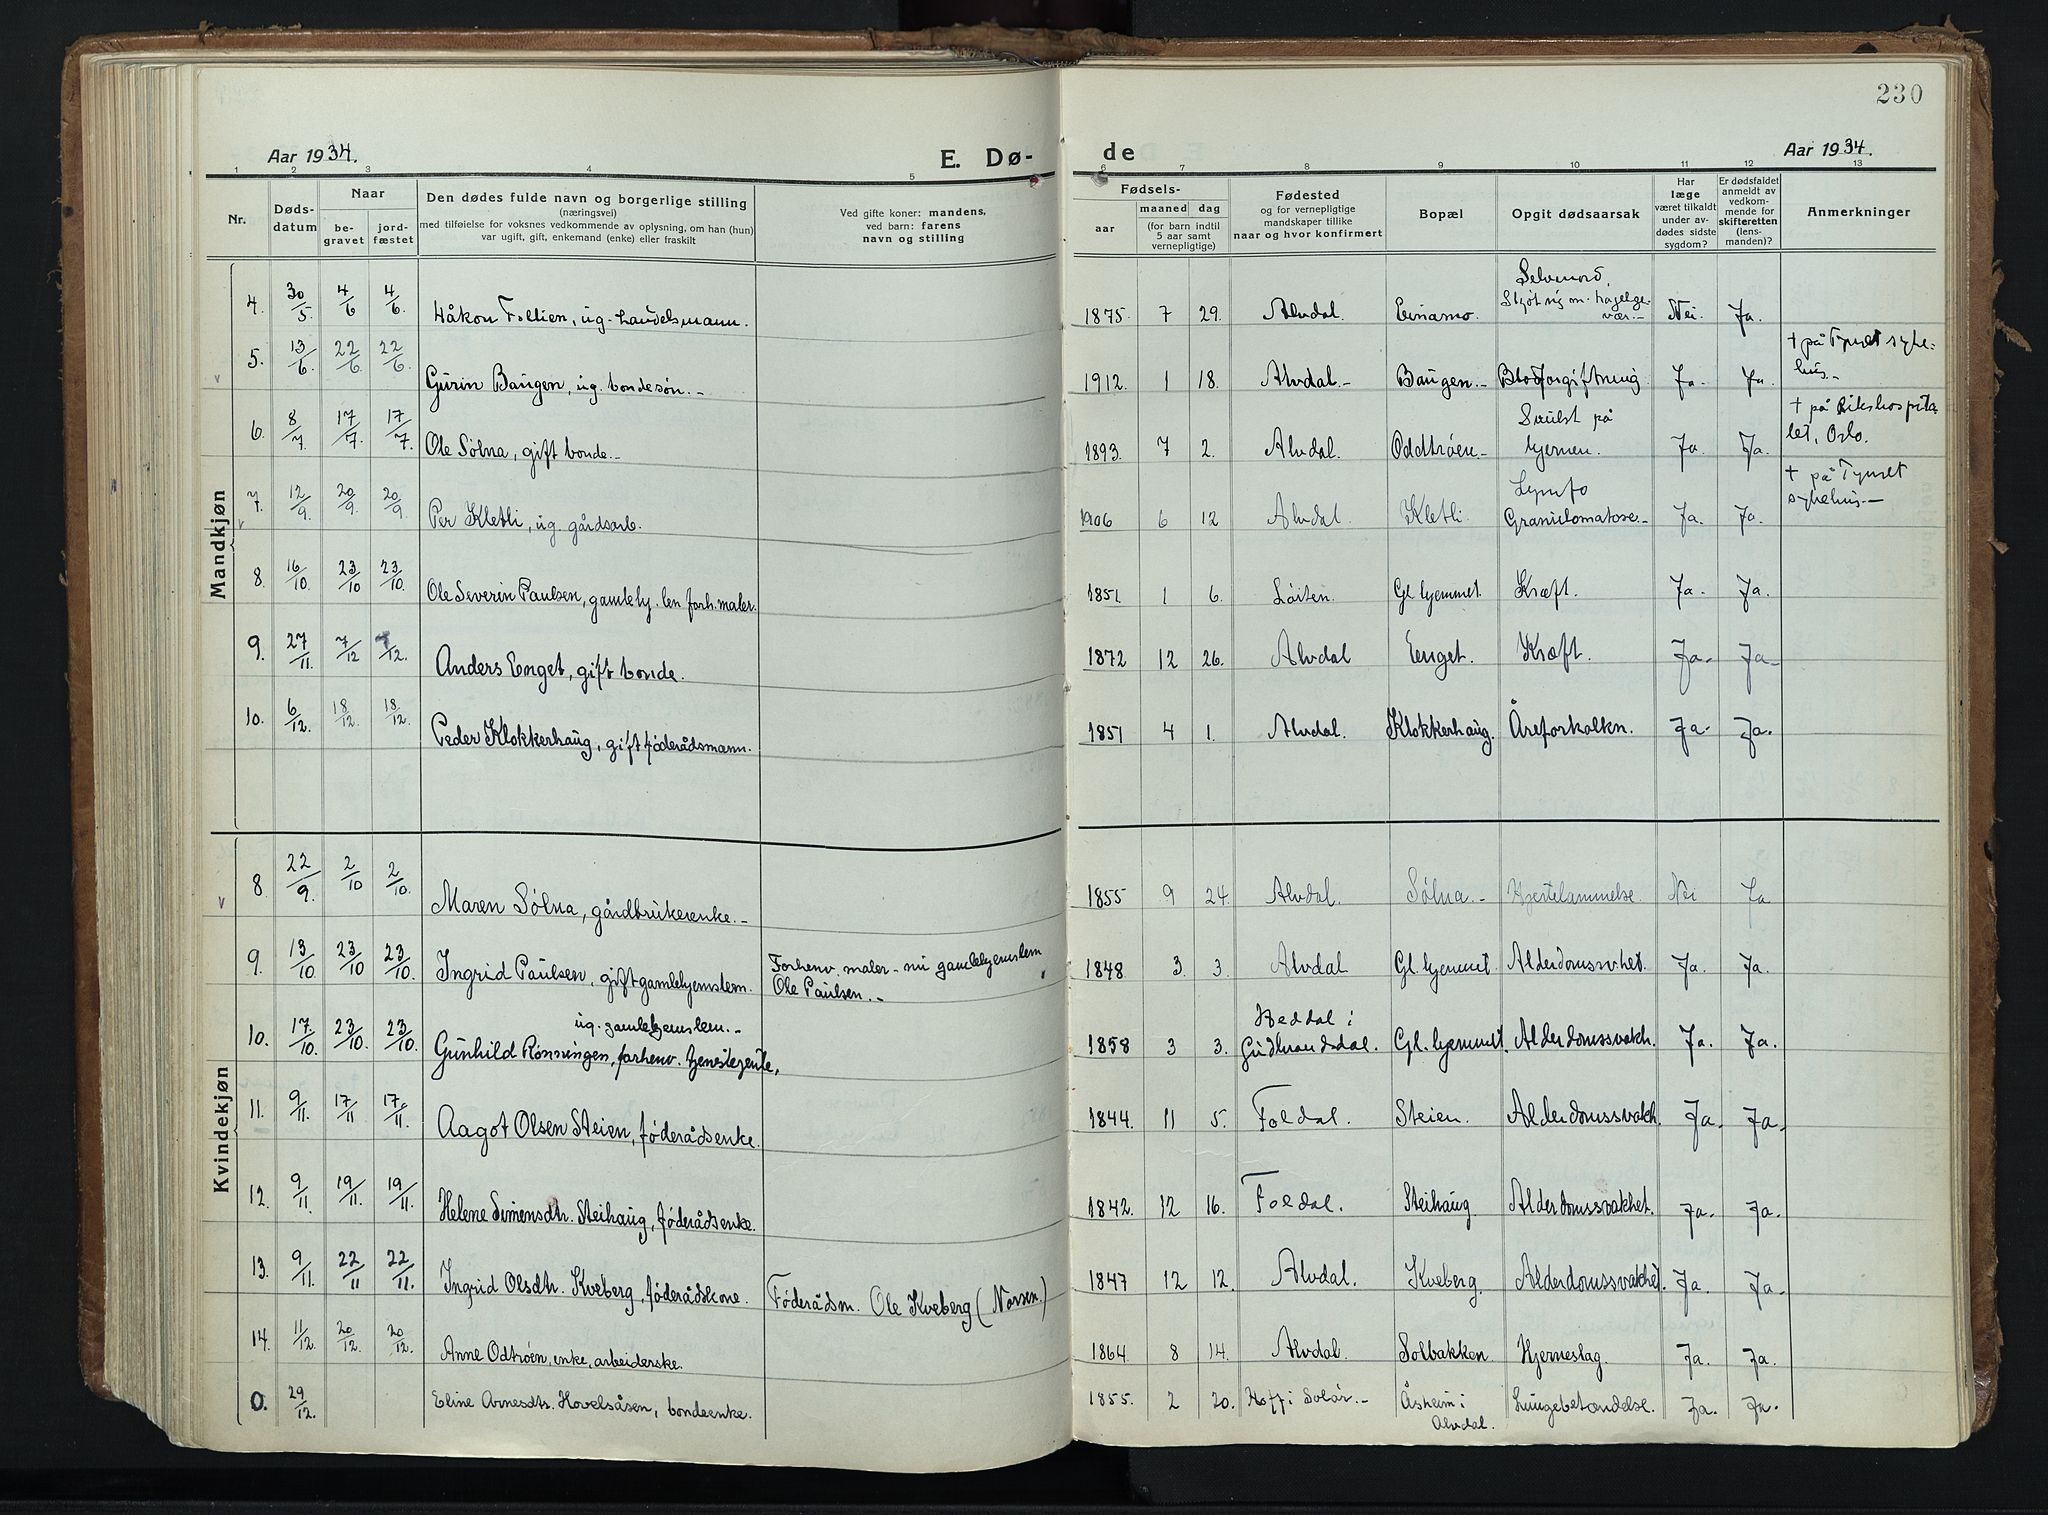 230
Aar 1934.
E. Dø-
de
Aar 1934.
1 2 3 4 5 6 7 8 9 10 11 12 13
Nr.
Døds-
datum
Naar
be-
gravet
jord-
fæstet
Den dødes fulde navn og borgerlige stilling
(næringsvei)
med tilføielse for voksnes vedkommende av oplysning, om han (hun)
var ugift, gift, enkemand (enke) eller fraskilt
Ved gifte koner: mandens,
ved barn: farens
navn og stilling
Fødsels-
aar
maaned
dag
(for barn indtil
5 aar samt
vernepligtige)
Fødested
og for vernepligtige
mandskaper tillike
naar og hvor konfirmert
Bopæl
Opgit dødsaarsak
Har
læge
været tilkaldt
under av-
dødes sidste
sygdom?
Er dødsfaldet
anmeldt av
vedkom-
mende for
skifteretten
(lens-
manden)?
Anmerkninger
Mandkjøn
4. 30/5. 4/6 4/6. Håkon Follien, ug. landelsmann. 1875. 7 29. Alvdal. Einamo. Selvmord,
Skjøt sig m. haglge-
vær.- Nei. Ja.
5. 13/6. 22/6. 22/6. Gurin Baugen, ug. bondesøn.- 1912. 1 18. Alvdal.- Baugen.- Blodforgiftning Ja. Ja. + på Tynset syke-
hus.-
6. 8/7. 17/7. 17/7. Ole Sølna, gift bonde.- 1893. 7 2. Alvdal. Oddtrøen.- Svulst på
hjernen. Ja. Ja. + på Rikshospita-
let, Oslo.
7. 12/9. 20/9. 20/9. Per Kletli, ug. gårdsarb. 1906 6 12 Alvdal. Kletli. Lymfo
Granulomatose.- Ja. Ja. + på Tynset
sykehus.-
8. 16/10. 23/10 23/10. Ole Severin Paulsen, gamlehj. lem forh. maler. 1851. 1 6. Løiten. Gl hjemmet. Kræft. Ja. Ja.
9. 27/11. 7/12 7/12. Anders Enget, gift bonde. 1872 12 26. Alvdal Enget. Kræft. Ja. Ja.
10. 6/12. 18/12. 18/12. Peder Klokkerhaug, gift føderådsmann. 1851 4 1. Alvdal. Klokkerhaug. Åreforkalkn. Ja. Ja.
Kvindekjøn
8. 22/9. 2/10 2/10. Maren Sølna, gårdbrukerenke.- 1855 9 24. Alvdal. Sølna.- Hjertelammelse. Nei Ja
9. 13/10 23/10 23/10. Ingrid Paulsen, gift gamlehjemslem. Forhenv. maler - nu gamlehjemslem
Ole Paulsen.- 1848 3. 3. Alvdal Gl. hjemmet. Alderdomssvhet. Ja. Ja.
10. 17/10. 23/10. 23/10. ug. gamlehjemslem.-
Gunhild Rønningen, forhenv. tjenstejente, 1858 3 3. Heddal i
Gudbrandsdal. Gl. hjemmet. Alderdomssvakh. Ja. Ja.
11. 9/11. 17/11 17/11. Aagot Olsen Steien, føderådsenke. 1844. 11 5. Foldal. Steien. Alderdomssvakh. Ja. Ja.
12. 9/11. 19/11. 19/11. Helene Simensdtr. Steihaug, føderådsenke. 1842. 12 16. Foldal. Steihaug Alderdomssvakhet. Ja. Ja.
13. 9/11. 22/11 22/11. Ingrid Olsdtr. Kveberg, føderådskone. Føderådsm. Ole Kveberg (Norsen.) 1847 12 12. Alvdal. Kveberg. Alderdomssvakhet. Ja. Ja.
14. 11/12. 20/12. 20/12. Anne Odtrøen, enke, arbeiderske. 1864 8 14. Alvdal. Solbakken. Hjerneslag. Ja. Ja.
0. 29/12. Eline Arnesdtr. Hovelsåsen, bondeenke. 1855. 2 20. Hoff i Solør.- Åsheim i
Alvdal. Lungebetændelse. Ja. Ja.